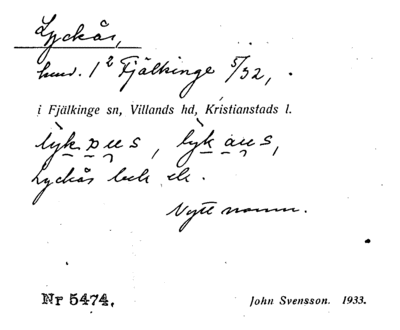 Lyckås,
hmd. 1² Fjälkinge 5/32,
i Fjälkinge sn, Villands hd, Kristianstads l.
Lyckås bck ek.
Nytt namn.
Nr 5474.
John Svensson. 1933.